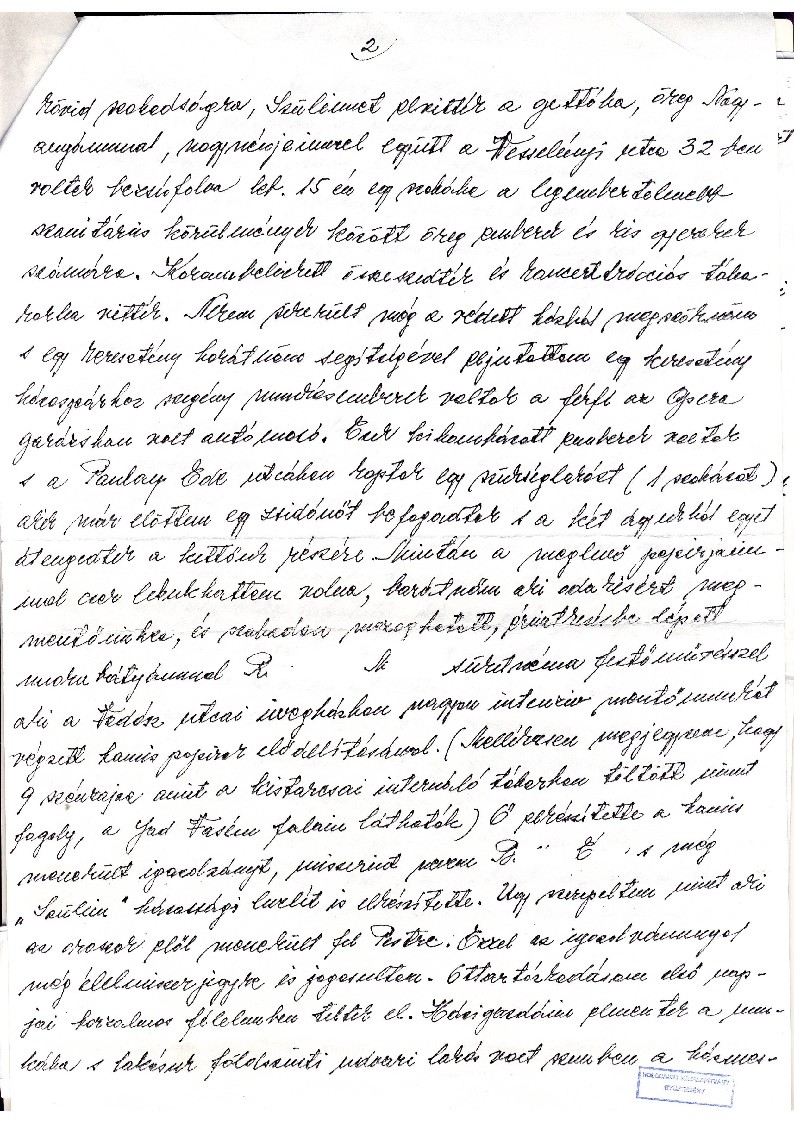 2
rövid szabadságra, Szüleimet elvitték a gettóba, öreg Nagy-
anyámmal, nagynénjeimmel együtt a Wesselényi utca 32 ben
voltak bezsúfolva kb. 15 én egy szobába a legembertelenebb
szanitárius körülmények között öreg emberek és kis gyerekek
számára. Korombelieket összeszedték és koncentrációs tábo-
rokba vitték. Nekem sikerült még a védett házból megszöknöm
s egy keresztény barátnőm segítségével eljutottam egy keresztény
házaspárhoz szegény munkásemberek voltak a férfi az Opera
garázsban volt autómosó. Ezek kibombázott emberek voltak
s a Paulay Ede utcában kaptak egy szükséglakást (1 szobásat)
akik már előttem egy zsidónőt befogadtak s a két ágyukból egyet
átengedtek a kettőnk részére. Mintán a meglevő papírjaim-
mal csak lebukhattam volna, barátnőm aki odakisért meg-
mentőimhez, és szabadon mozoghatott, érintkezésbe lépett
unokabátyámmal R. M súketnéma festőművésszel
aki a Vadász utcai üvegházban nagyon intenziv mentőmunkát
végzett hamis papirok előállításával. (Mellékesen megjegyzem, hogy
9 szénrajza amit a kistarcsai internáló táborban töltött mint
fogoly, a Jad Vasém falain láthatók) Ő elkészítette a hamis
menekült igazolványt, miszerint nevem B. É. s még
„Szüleim" házassági levelét is elkészítette. Ugy szerepeltem mint aki
az oroszok elől menekült fel Pestre. Ezzel az igazolvánnyal
még élelmiszerjegyre is jogosultam. Ottartózkodásom első nap-
jai borzalmas félelemben teltek el. Házigazdáim elmentek a mun-
kába s lakásuk földszinti udvari lakás volt szemben a házmes-